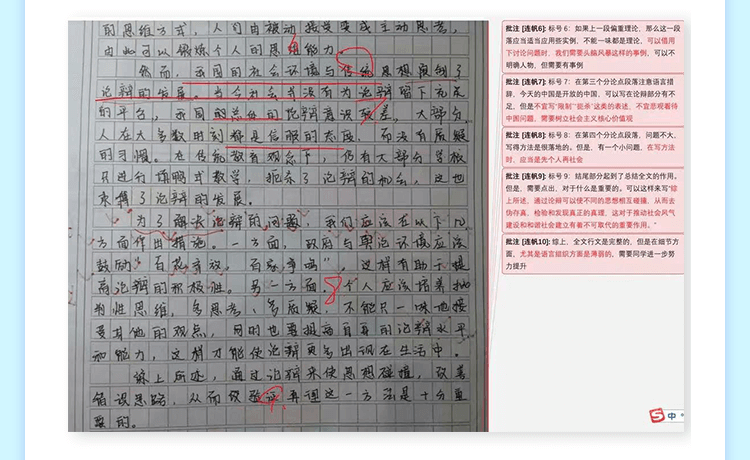 的思维方式，人们由被动接受变成主动思考，
由此可以锻炼个人的思维能力。
然而，我国的社会环境与传统思想限制了
论辩的发展。当今社会并没有为论辩留下充足
的平台，我国的总体的论辩意识较差，大部分
人在大多数时刻都是信服的态度，而没有质疑
的习惯。在传统教育观念下，仍有大部分学校
只进行填鸭式教学，扼杀了论辩的机会，这也
束缚了论辩的发展。
为了解决论辩的问题，我们应该在以下几
方面作出措施。一方面，政府与舆论环境应该
鼓励"百花齐放，百家争鸣"，这样有助于提
高论辩的积极性。另一方面，个人应该培养批
判性思维，多思考、多质疑，不能只一味地接
受其他的观点，同时也要提高自身的论辩水平
和能力，这样才能使论辩更多出现在生活中。
综上所述，通过论辩来使思想碰撞，改善
错误思路，从而使验证真理这一方法是十分重
要的。
批注 [连帆6]: 标号 6：如果上一段偏重理论，那么这一段
落应当适当应用些实例，不能一味都是理论，可以借用
下讨论问题时，我们需要头脑风暴这样的事例，可以不
明确人物，但需要有事例
批注 [连帆7]: 标号 7：在第三个分论点段落注意语言措
辞，今天的中国是开放的中国，可以写在论辩部分有不
足，但是不宜写"限制""扼杀"这类的表述，不宜悲观看待
中国问题，需要树立社会主义核心价值观
批注 [连帆8]: 标号 8：在第四个分论点段落，问题不大，
写得方法是很落地的。但是，有一个小问题，在写方法
时，应当是先个人再社会
批注 [连帆9]: 标号 9：结尾部分起到了总结全文的作用。
但是，需要点出，对于什么是重要的。可以这样来写"综
上所述，通过论辩可以使不同的思想相互碰撞，从而去
伪存真，检验和发现真正的真理，这对于推动社会风气
建设和和谐社会建立有着不可取代的重要作用。"
批注 [连帆10]: 综上，全文行文是完整的，但是在细节方
面，尤其是语言组织方面是薄弱的，需要同学进一步努
力提升
中